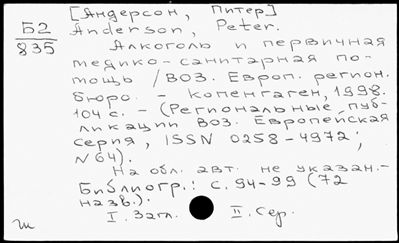 [Андерсон, Питер]
Б2
835
Anderson, Peter.
Алкоголь и первичная
медико-санитарная по-
мощь /ВОЗ. Европ. регион.
бюро. - Копенгаген, 1998.
104 с. - (Региональные пуб-
ликации ВОЗ. Европейская
серия, ISSN 0258-4972;
N 64).
На обл. авт. не указан.-
Библиогр.: с. 94-99 (72
назв.).
I. Загл. II. Сер.